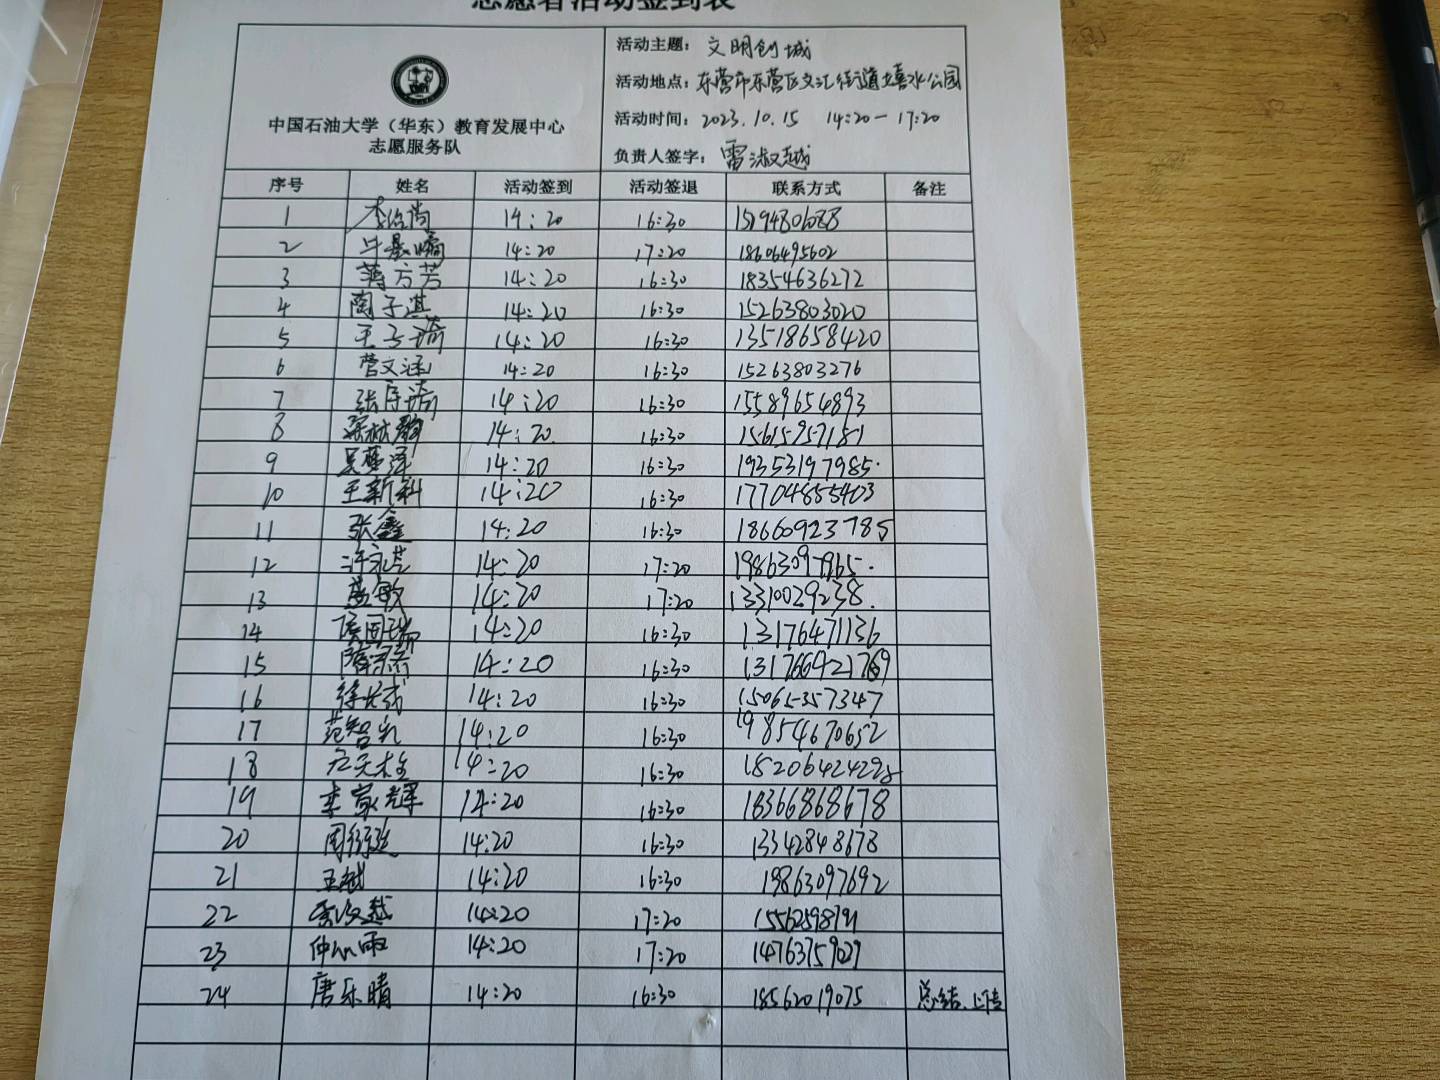 志愿者活动签到表
中国石油大学（华东）教育发展中心
志愿服务队
活动主题： 文明创城
活动地点：东营市东营区文汇街道嬉水公园
活动时间：2023.10.15 14:20-17:20
负责人签字：雷淑越
序号 姓名 活动签到 活动签退 联系方式 备注
1 14:20 16:30
2 14:20 17:20 18606495602
3 蒋方芳 14:20 16:30 18354636272
4 陶子淇 14:20 16:30 15263803020
5 王子琦 14:20 16:30 13518658420
6 营文涵 14:20 16:30 15263803276
7 14:20 16:30 15589654893
8 14:20 16:30 15615957151
9 吴梦泽 14:20 16:30 19353197985
10 王新科 14:20 16:30 17704855403
11 张鑫 14:20 16:30 18660923785
12 许永芸 14:20 17:20 19863097965
13 孟敏 14:20 17:20 13310029238
14 14:20 16:30 13176471136
15 14:20 16:30
16 徐长城 14:20 16:30 15065357347
17 范智礼 14:20 16:30 19854670652
18 14:20 16:30 18206424298
19 李家辉 14:20 16:30 18366868678
20 14:20 16:30 13342848678
21 王斌 14:20 16:30 19863097692
22 14:20 17:20
23 14:20 17:20 14763759029
24 唐乐晴 14:20 16:30 18562019075 总结、上传